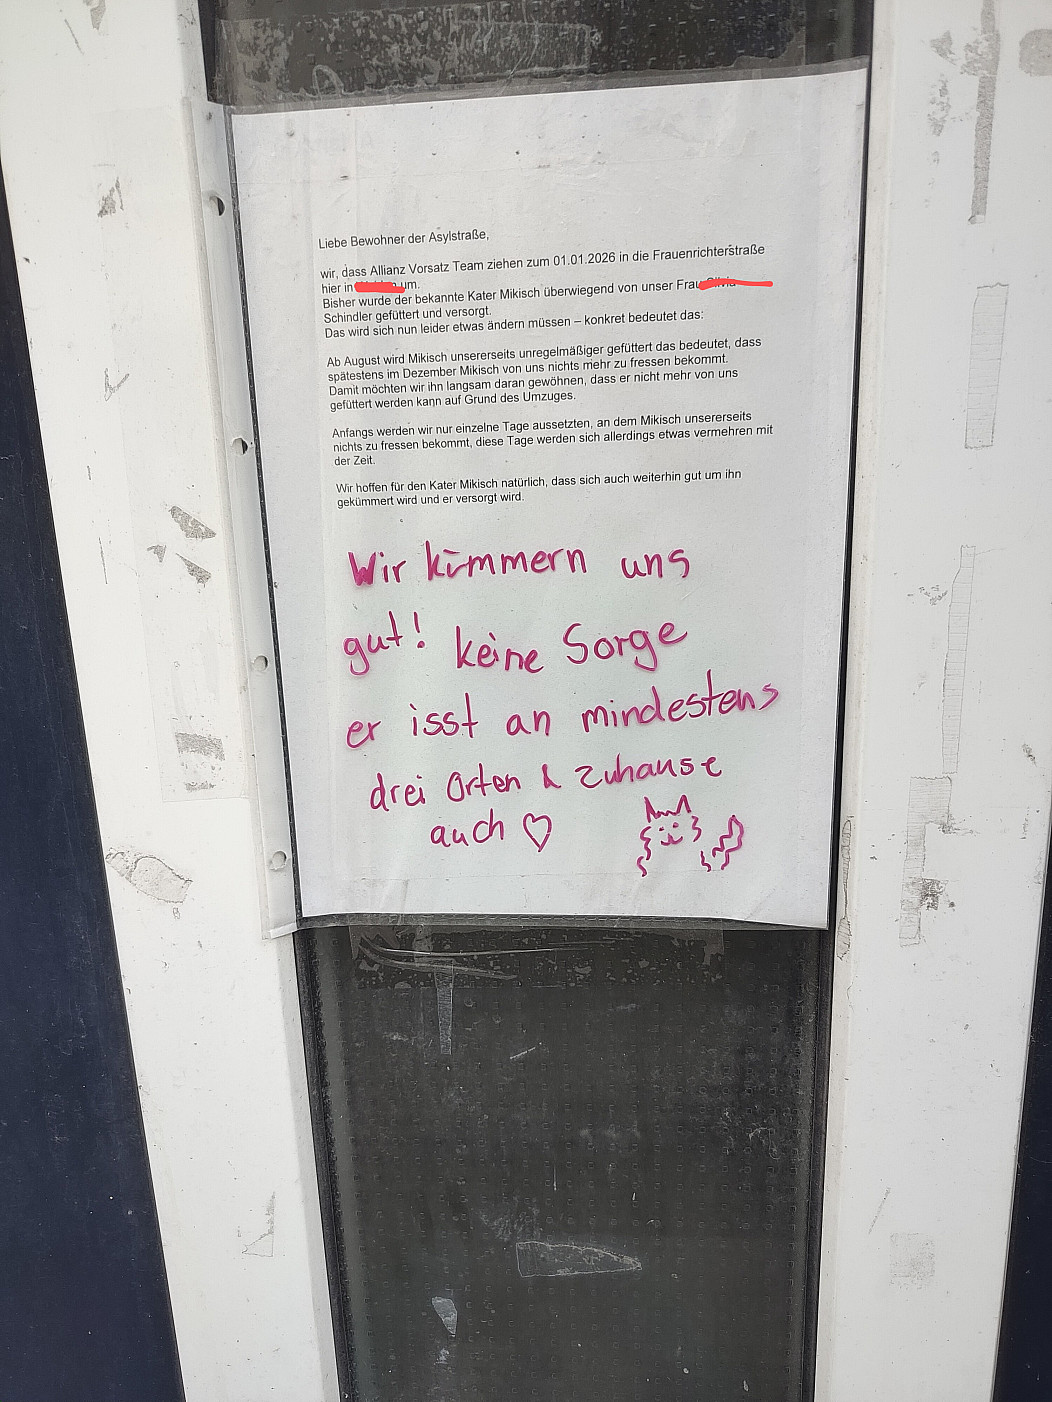 Liebe Bewohner der Asylstraße,
wir, dass Allianz Vorsatz Team ziehen zum 01.01.2026 in die Frauenrichterstraße
hier in um.
Bisher wurde der bekannte Kater Mikisch überwiegend von unser Frau
Schindler gefüttert und versorgt.
Das wird sich nun leider etwas ändern müssen – konkret bedeutet das:
Ab August wird Mikisch unsererseits unregelmäßiger gefüttert das bedeutet, dass
spätestens im Dezember Mikisch von uns nichts mehr zu fressen bekommt.
Damit möchten wir ihn langsam daran gewöhnen, dass er nicht mehr von uns
gefüttert werden kann auf Grund des Umzuges.
Anfangs werden wir nur einzelne Tage aussetzten, an dem Mikisch unsererseits
nichts zu fressen bekommt, diese Tage werden sich allerdings etwas vermehren mit
der Zeit.
Wir hoffen für den Kater Mikisch natürlich, dass sich auch weiterhin gut um ihn
gekümmert wird und er versorgt wird.
Wir kümmern uns
gut! keine Sorge
er isst an mindestens
drei Orten & zuhause
auch ♡